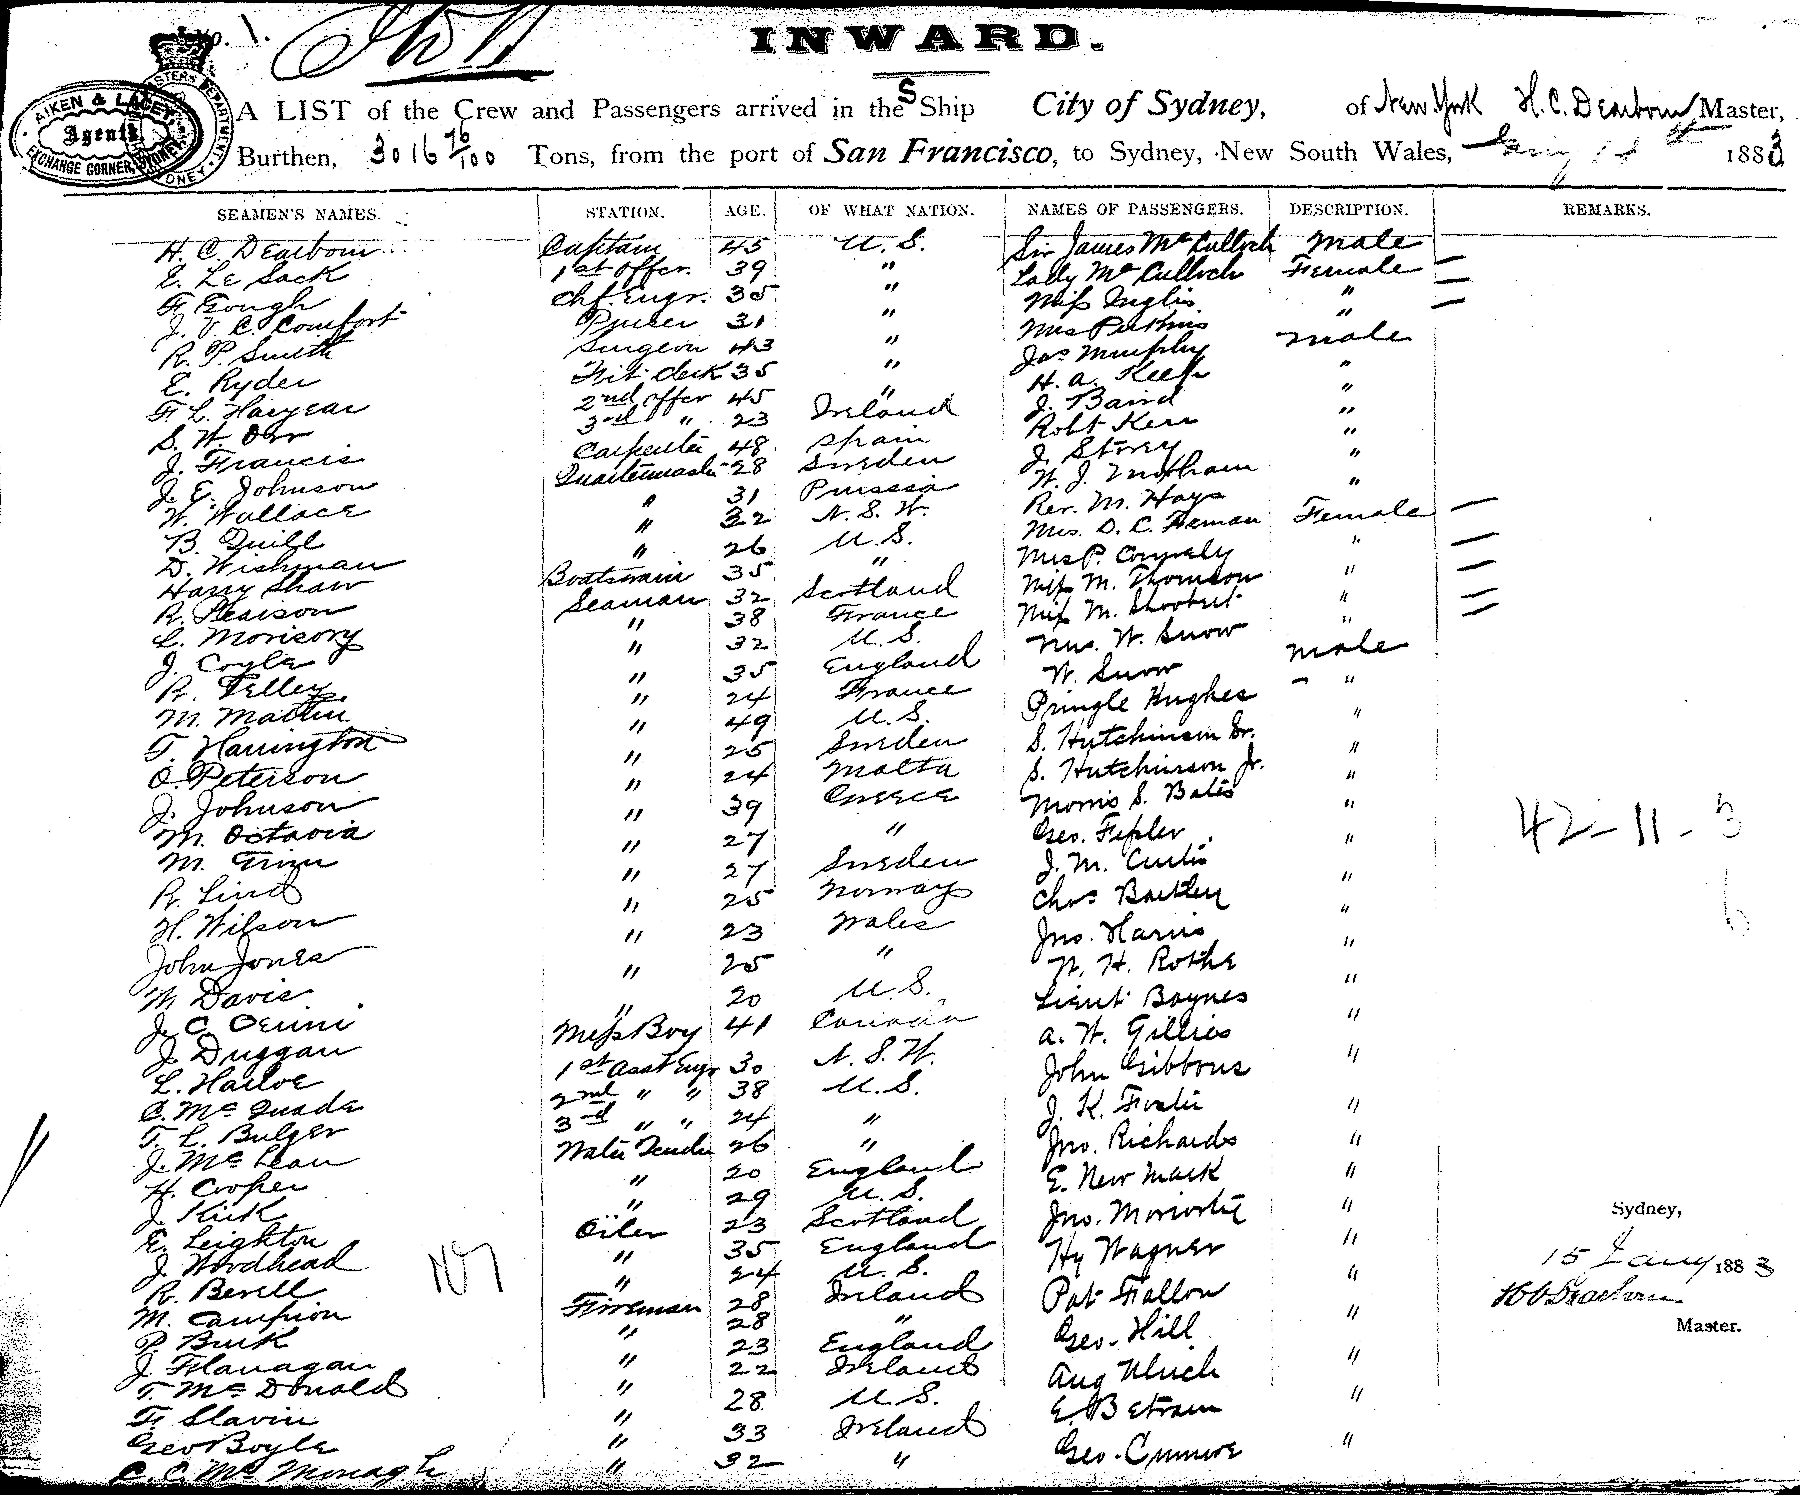 No. 1.
INWARD.
AIKEN & LACEY
Agents
EXCHANGE CORNER, SYDNEY
A LIST of the Crew and Passengers arrived in the S Ship City of Sydney, of New York H. C. Dearborn Master,
Burthen, 3016 76/100 Tons, from the port of San Francisco, to Sydney, New South Wales, Jany 15th 1883
SEAMEN'S NAMES. STATION. AGE. OF WHAT NATION. NAMES OF PASSENGERS. DESCRIPTION. REMARKS.
H. C. Dearborn Captain 45 U. S. Sir James McCulloch Male
E. Le Sack 1st Offer. 39 " Lady McCulloch Female
F. Gough Chf. Engr. 35 " Miss Inglis "
J. V. C. Comfort Purser 31 " Mrs Perkins "
R. P. Smith Surgeon 43 " Jas Murphy Male
E. Ryder Frt. Clerk 35 " H. A. Keefe "
F. L. Haryear 2nd Offer 45 " J. Baird "
S. W. Orr 3rd " 23 Ireland Robt Kerr "
J. Francis Carpenter 48 Spain J. Storey "
J. E. Johnson Quartermaster 28 Sweden W. J. "
W. Wallace " 31 Prussia Rev. M. Hays "
B. Quill " 32 N. S. W. Mrs. D. C. Female
D. Wishman " 26 U. S. Mrs P. "
Harry Shaw Boatswain 35 " Miss M. Thomson "
R. Pearson Seaman 32 Scotland Miss M. "
L. Morisory " 38 France Mrs. W. Snow "
J. Coyle " 32 U. S. W. Snow Male
R. Kelley " 35 England Pringle Hughes "
M. Martin " 24 France S. Hutchinson Sr. "
T. Harrington " 49 U. S. S. Hutchinson Jr. "
O. Peterson " 25 Sweden Morris S. Bates "
J. Johnson " 24 Malta Geo. Fesler "
M. Octavia " 39 Greece J. M. Curtis "
M. Grim " 27 " Chas Bartley "
R. Lind " 27 Sweden Jno. Harris "
H. Wilson " 25 Norway W. H. Rothe "
John Jones " 23 Wales Lieut Baynes "
M Davis " 25 " A. W. Gillies "
J. C. " 20 U. S. John Gibbons "
J. Duggan Mess Boy 41 Canada J. K. Foster "
L. Harloe 1st Asst Engr 30 N. S. W. Jno. Richards "
C. McQuade 2nd " " 38 U. S. E. New Mark "
T. L. Bulger 3rd " " 24 " Jno. "
J. McLean Water Tender 26 " Hy Wagner "
H. Cooper " 20 England Pat Fallon "
J. Kirk " 29 U. S. Geo. Hill "
E. Leighton Oiler 23 Scotland Aug Ulrich "
J. Woodhead " 35 England E. Betram "
R. Berell " 24 U. S. Geo. "
M. Campion Fireman 28 Ireland
P. Burk " 28 "
J. Flanagan " 23 England
T. McDonald " 22 Ireland
F. Slavin " 28 U. S.
Geo Boyle " 33 Ireland
C. C. " 32 "
42-11-3
6
107
Sydney,
15 Jany 1883
H C Dearborn
Master.